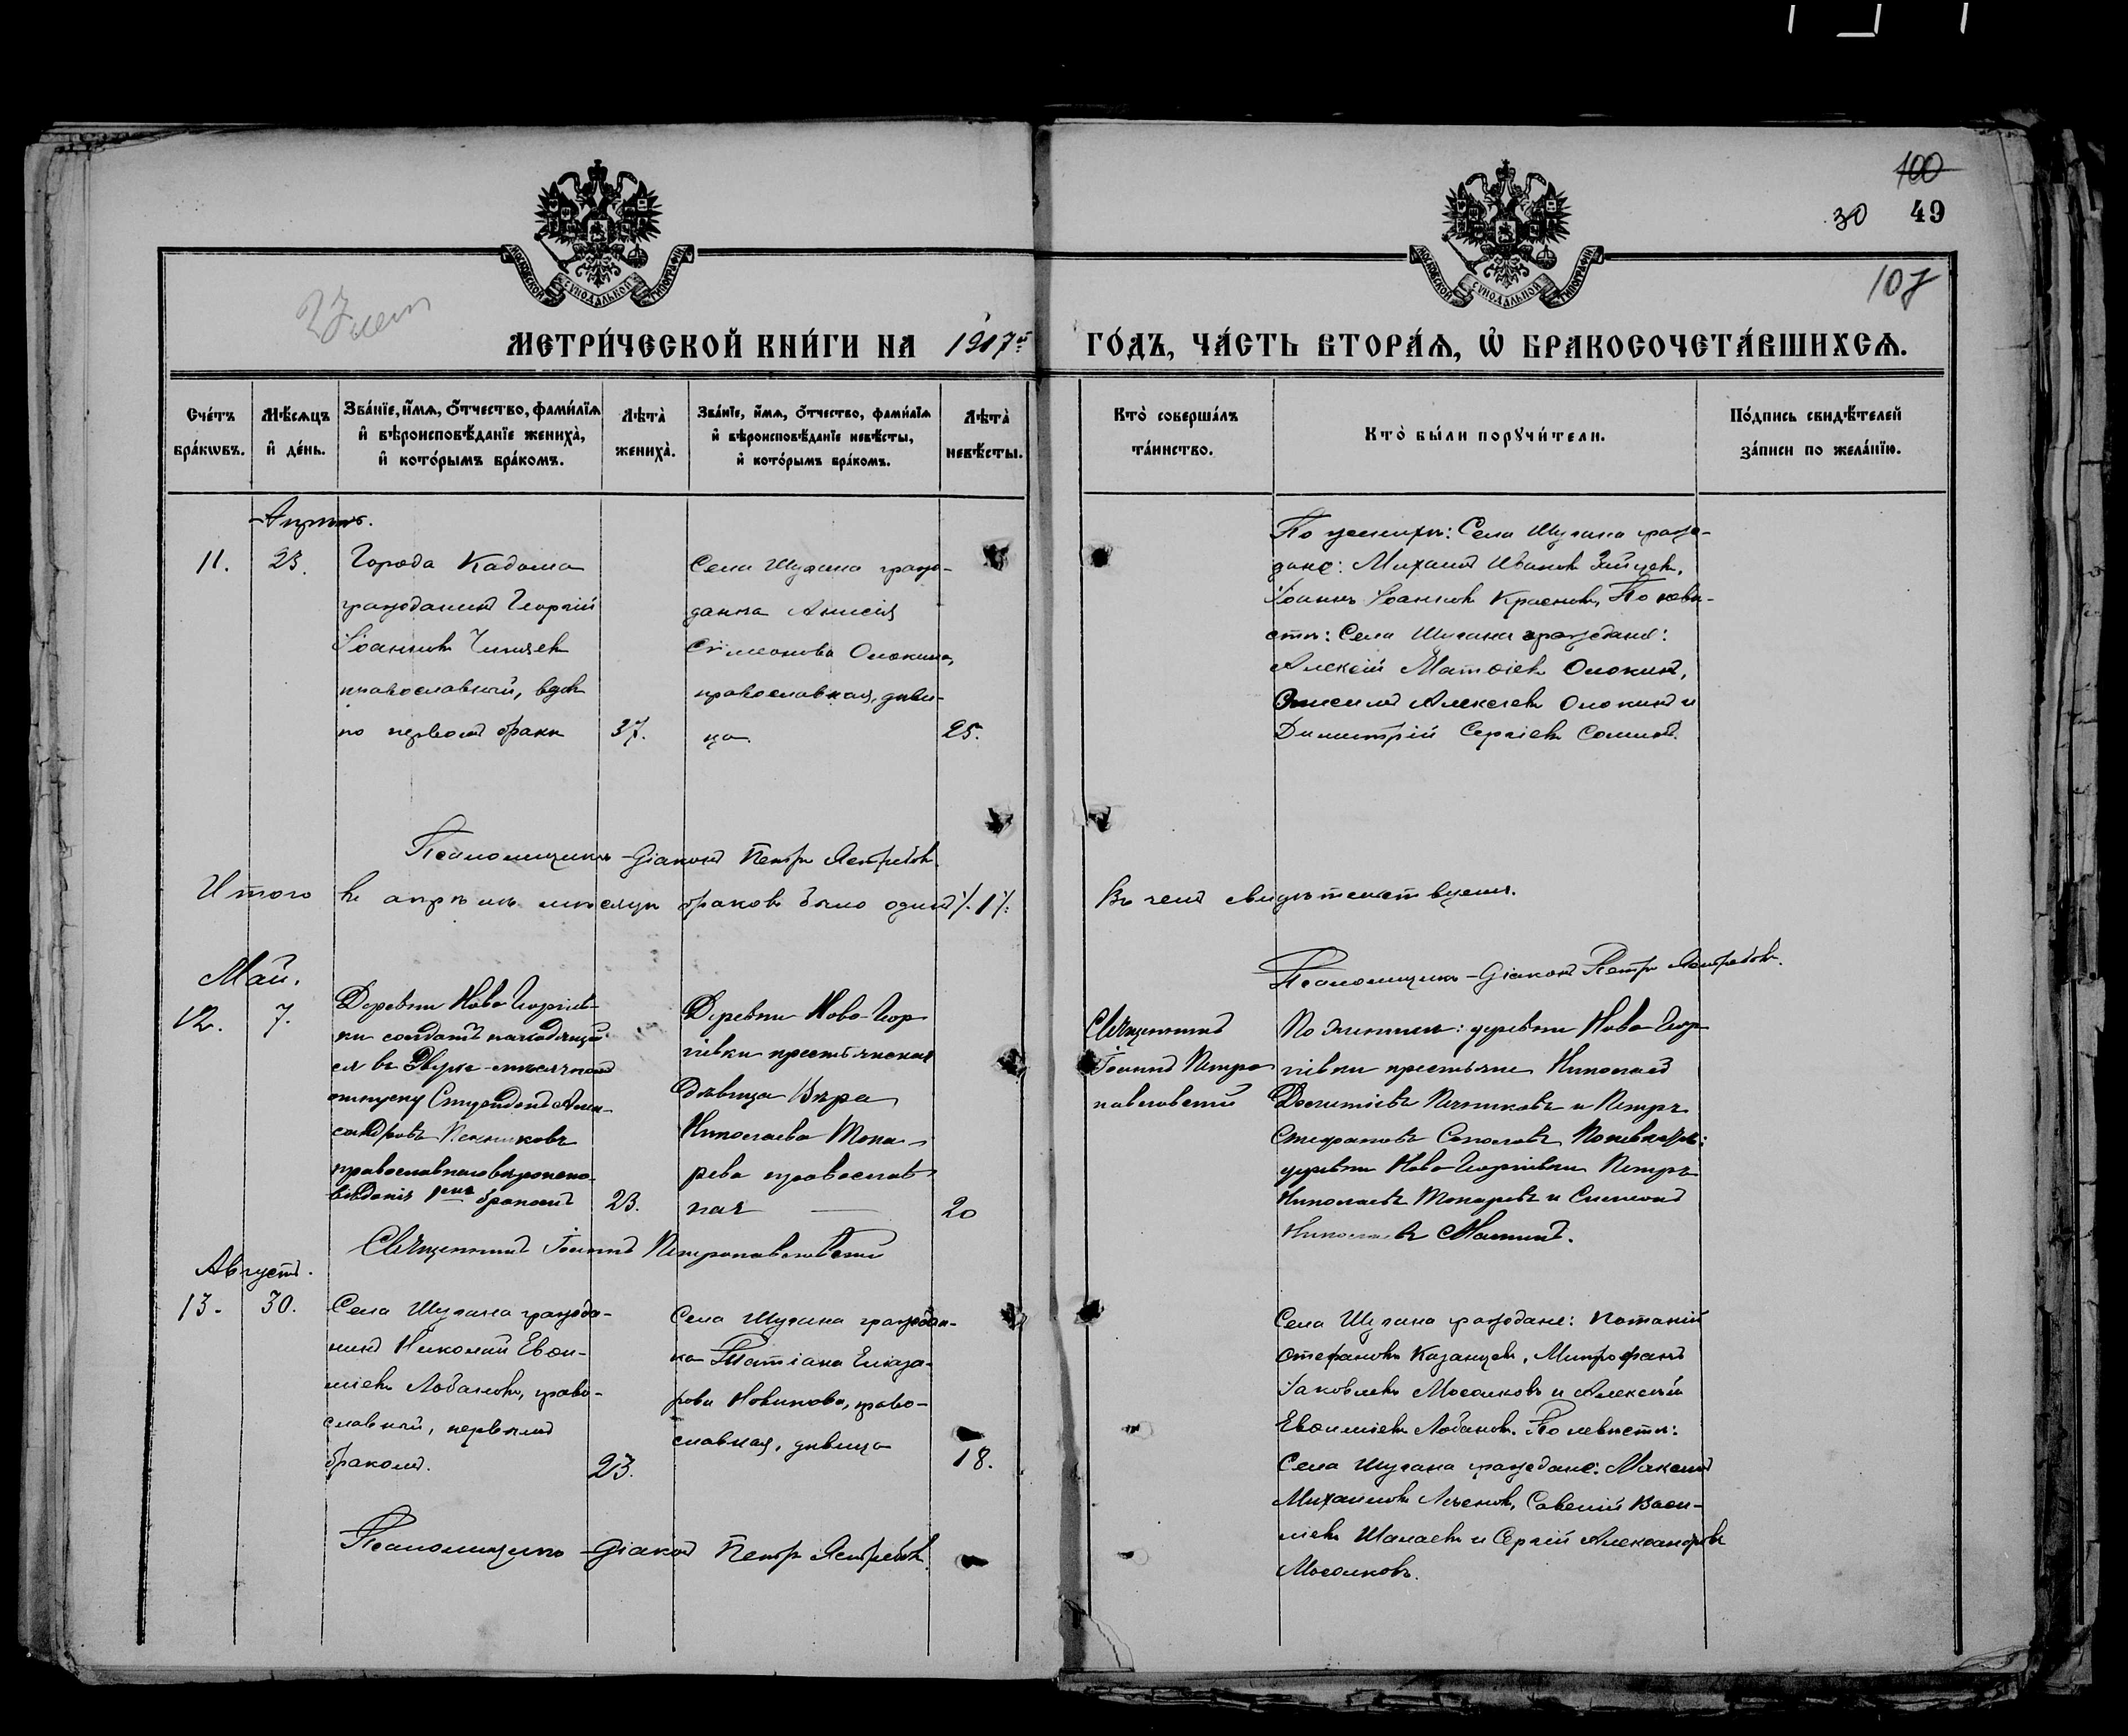 100
30 49
107
МОСКОВСКОЙ СѴНОДАЛЬНОЙ ТИПОГРАФІИ
МОСКОВСКОЙ СѴНОДАЛЬНОЙ ТИПОГРАФІИ
МЕТРИ́ЧЕСКОЙ КНИ́ГИ НА 1917й ГО́ДЪ, ЧА́СТЬ ВТОРА́Ѧ, Ѡ БРАКОСОЧЕТА́ВШИХСѦ.
Сче́тъ бра́кѡвъ.
Мѣ́сѧцъ и҆ де́нь.
Зва́нїе, и҆́мѧ, ѻ҆́тчество, фами́лїѧ
и҆ вѣроисповѣ́данїе жениха̀,
и҆ кото́рымъ бра́комъ.
Лѣта̀ жениха̀.
Зва́нїе, и҆́мѧ, ѻ҆́тчество, фами́лїѧ
и҆ вѣроисповѣ́данїе невѣ́сты,
и҆ кото́рымъ бра́комъ.
Лѣта̀ невѣ́сты.
Кто̀ соверша́лъ та́инство.
Кто̀ бы́ли порꙋчи́тели.
По́дпись свидѣ́телей за́писи по жела́нїю.
Апрѣль.
11. 23.
Города Кадома
гражданинъ Георгій
Іоанновъ
православный, вдовъ
по первомъ бракѣ
37.
Села Шугана граж-
данка Анисія
Сѵмеонова Олокина,
православная, дѣви-
ца.
25.
По женихѣ: Села Шугана граж-
дане: Михаилъ Ивановъ Зайцевъ,
Іоаннъ Іоанновъ Красновъ, По невѣ-
стѣ: Села Шугана граждане:
Алексій Матѳіевъ Олокинъ,
Алексіевъ Олокинъ и
Димитрій Сергіевъ Соминъ.
Псаломщикъ-діаконъ Петръ Ястребовъ.
Итого въ апрѣлѣ мѣсяцѣ браковъ было одинъ /.1/. Въ чемъ свидѣтельствуемъ.
Псаломщикъ-діаконъ Петръ Ястребовъ.
Май.
12. 7.
Деревни Ново-Георгіев-
ки солдатъ находящій-
ся въ мѣсячномъ
отпуску Алек-
сандровъ
православнаго вѣроиспо-
вѣданія 1мъ бракомъ
23.
Деревни Ново-Геор
гіевки крестьянская
дѣвица Вѣра
Николаева Тока-
рева православ-
ная
20
Священникъ
Іоаннъ Петро
павловскій
По женихѣ: деревни Ново-Геор
гіевки крестьяне Николай
и Петръ
Стефановъ Соколовъ, По невѣстѣ:
деревни Ново-Георгіевки Петръ
Николаевъ Токаревъ и Симеонъ
Николаевъ
Священникъ Іоаннъ Петропавловскій
Августъ.
13. 30.
Села Шугана гражда-
нинъ Николай Евѳи-
міевъ Лобановъ, право-
славный, первымъ
бракомъ.
23.
Села Шугана граждан-
ка Татіана Еліаза-
рова Новикова, право-
славная, дѣвица
18.
Села Шугана граждане: Потапій
Стефановъ Казанцевъ, Митрофанъ
Іаковлевъ Мосолковъ и Алексѣй
Евѳиміевъ Лобановъ. По невѣстѣ:
Села Шугана граждане: Максимъ
Михаиловъ Савелій Васи-
ліевъ Шалаевъ и Сергій Александровъ
Мосолковъ.
Псаломщикъ-діаконъ Петръ Ястребовъ.